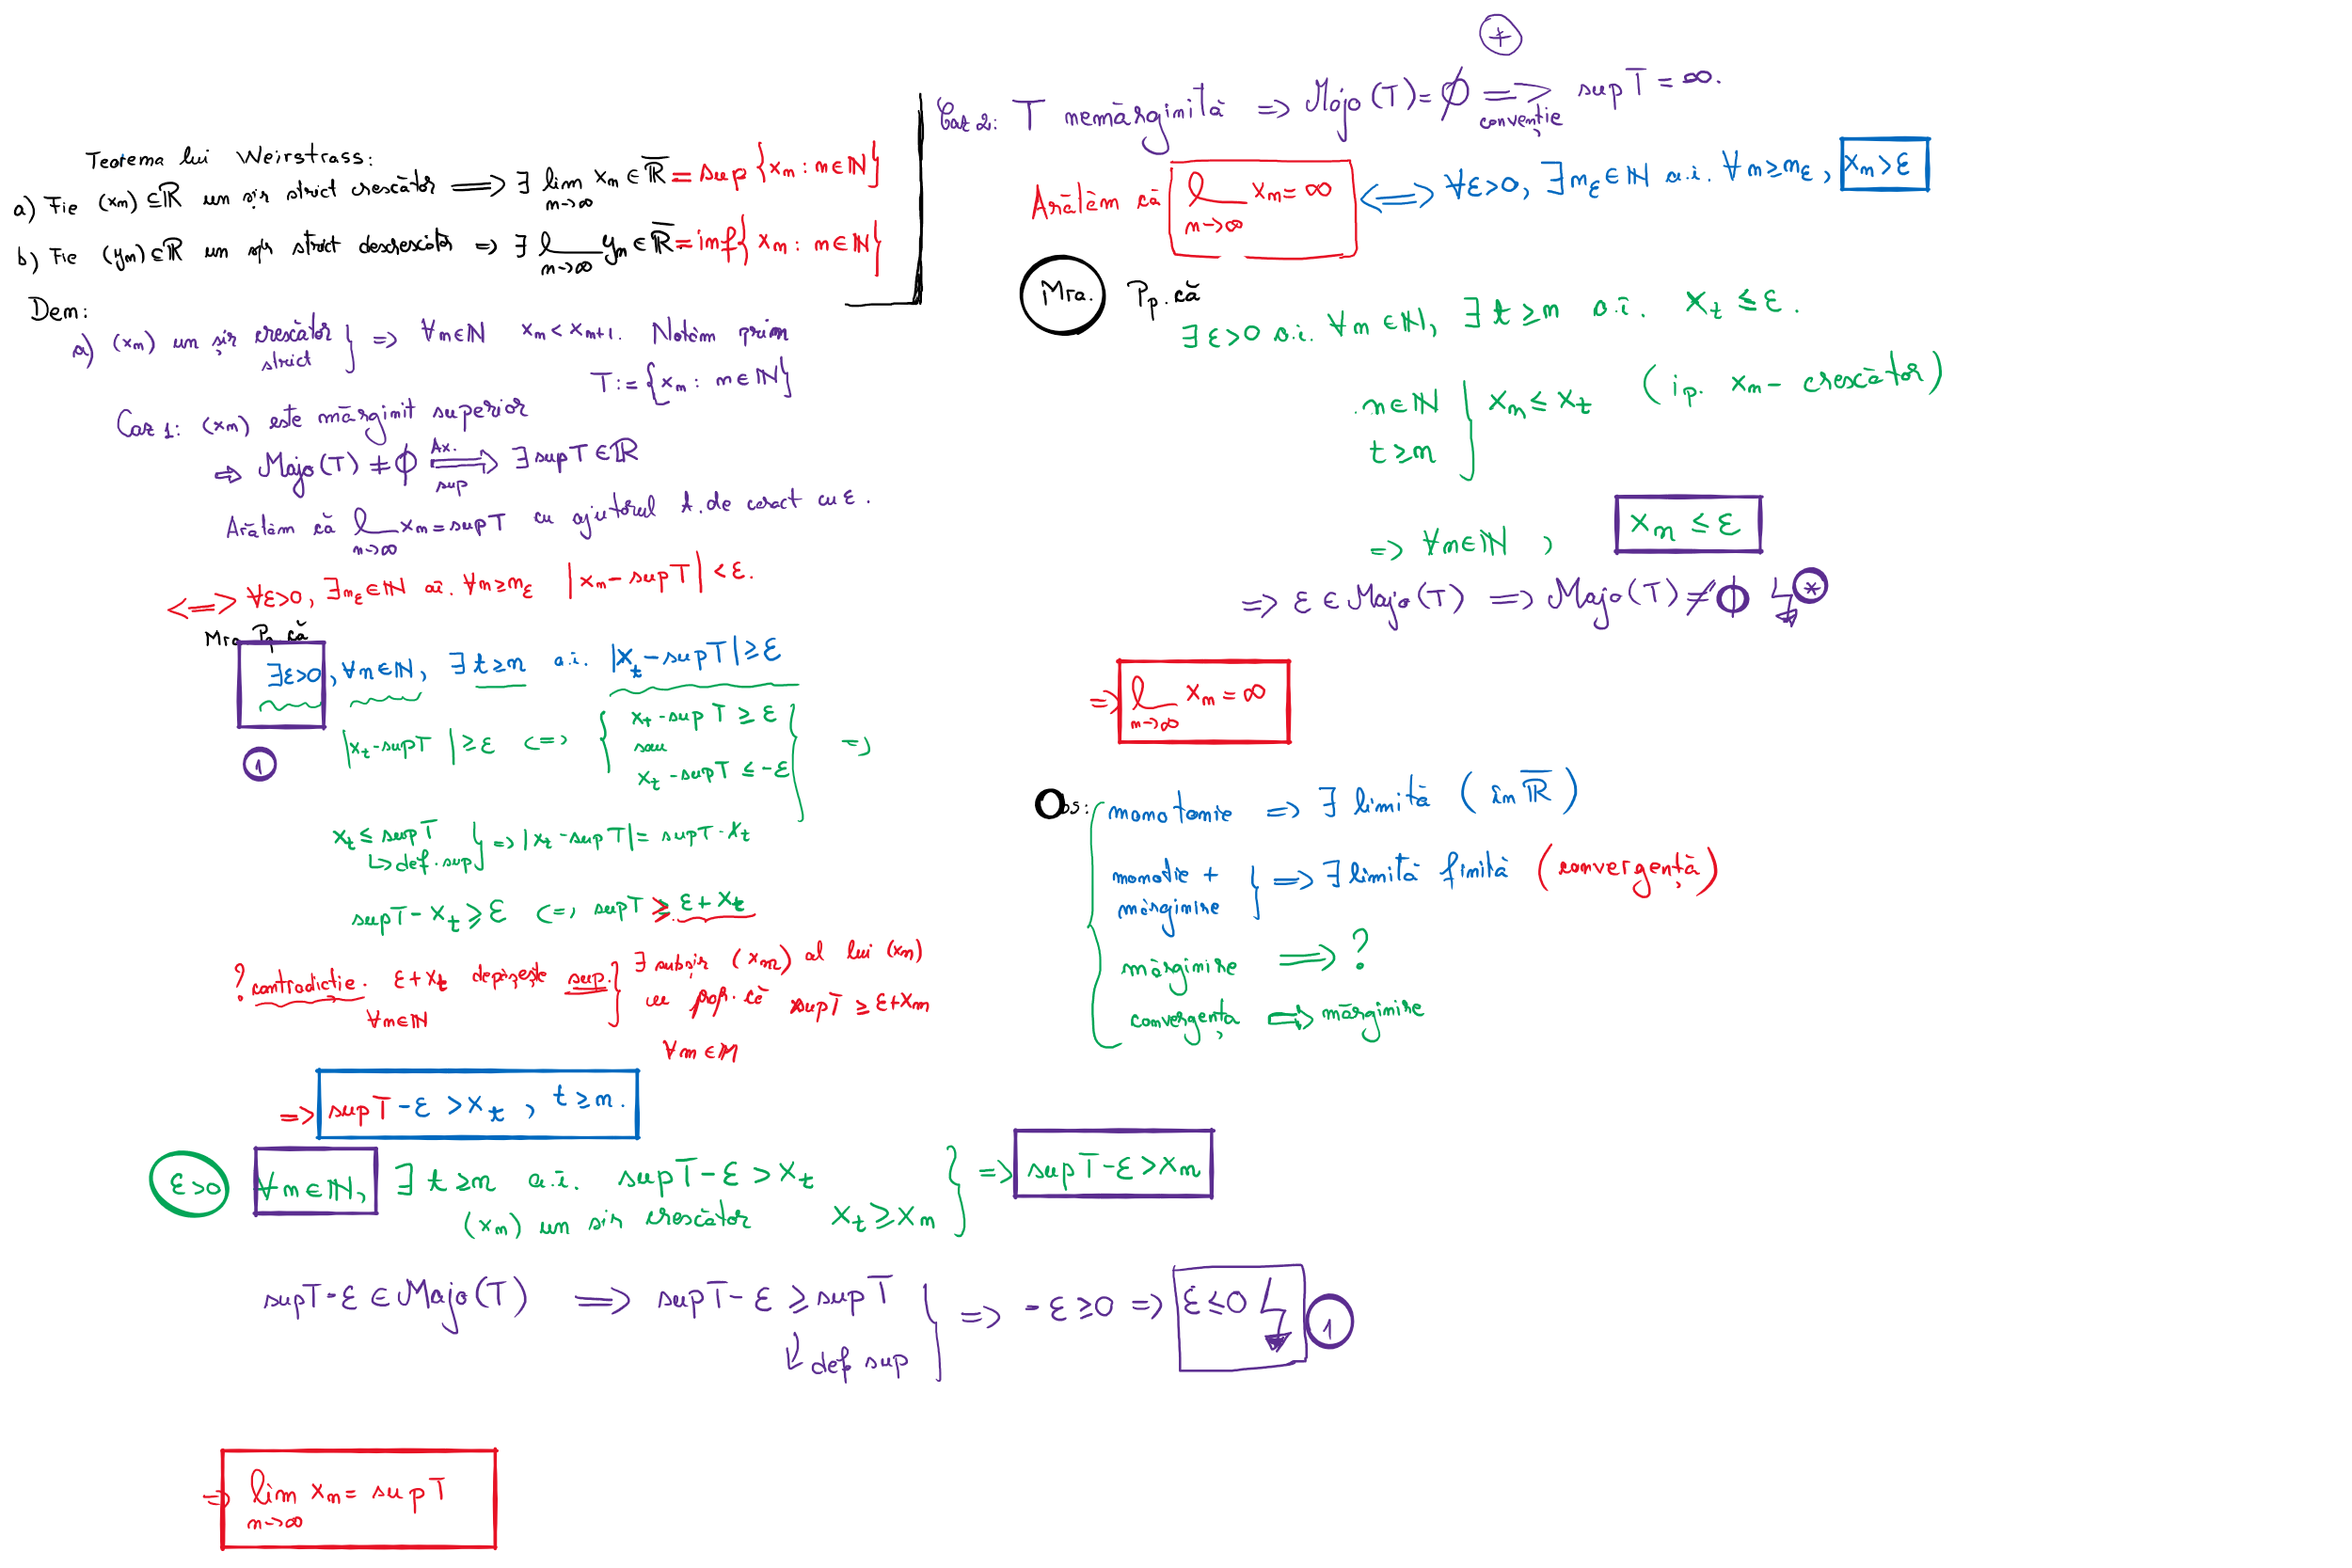 Teorema lui Weirstrass:
a) Fie (xn) ⊆ ℝ un șir strict crescător ⟹ ∃ lim n→∞ xn ∈ ℝ̅ = sup {xn : n∈ℕ}
b) Fie (yn) ⊆ ℝ un șir strict descrescător => ∃ l n→∞ yn ∈ ℝ̅ = inf { xn : n∈ℕ}
Dem:
a) (xn) un șir crescător strict } => ∀n∈ℕ xn < xn+1. Notăm prin
T := {xn : n∈ℕ}
Caz 1: (xn) este mărginit superior
=> Majo(T) ≠ ∅ ⟹ Ax. sup ∃ sup T ∈ ℝ
Arătăm că l n→∞ xn = sup T cu ajutorul t. de caract cu ε.
<=> ∀ε>0, ∃nε∈ℕ aî. ∀n≥nε |xn - sup T| < ε.
Mra Pp că
∃ε>0, ∀n∈ℕ, ∃ t≥n a.î. |xt - sup T| ≥ ε
①
|xt - sup T| ≥ ε <=> { xt - sup T ≥ ε
sau
xt - sup T ≤ -ε } =>
xt ≤ sup T
↳ def. sup } => |xt - sup T| = sup T - xt
sup T - xt ≥ ε <=> sup T ≥ ε + xt
? contradictie. ε + xt depășește sup. } ∃ subșir (xm) al lui (xn)
∀n∈ℕ
cu prop. că sup T ≥ ε + xm
∀m∈ℕ
=> sup T - ε > xt , t ≥ n.
ε>0 ∀n∈ℕ, ∃ t≥n a.î. sup T - ε > xt
(xn) un șir crescător xt ≥ xn } => sup T - ε > xn
sup T - ε ∈ Majo(T) ⟹ sup T - ε ≥ sup T
↳ def sup } => -ε ≥ 0 => ε ≤ 0 ↯ ①
=> lim n→∞ xn = sup T
+
Caz 2: T nemărginită => Majo(T) = ∅ ⟹ convenție sup T = ∞.
Arătăm că l n→∞ xn = ∞ <=> ∀ε>0, ∃nε∈ℕ a.î. ∀n≥nε, xn > ε
Mra. Pp. că
∃ε>0 a.î. ∀n∈ℕ, ∃ t≥n a.î. xt ≤ ε.
n∈ℕ
t≥n } xn ≤ xt (ip. xn - crescător)
=> ∀n∈ℕ , xn ≤ ε
=> ε ∈ Majo(T) => Majo(T) ≠ ∅ ↯ *
=> l n→∞ xn = ∞
Obs: { monotonie => ∃ limită (în ℝ̅)
monotie +
mărginire } => ∃ limită finită (convergență)
mărginire ⟹ ?
convergența ⟹ mărginire